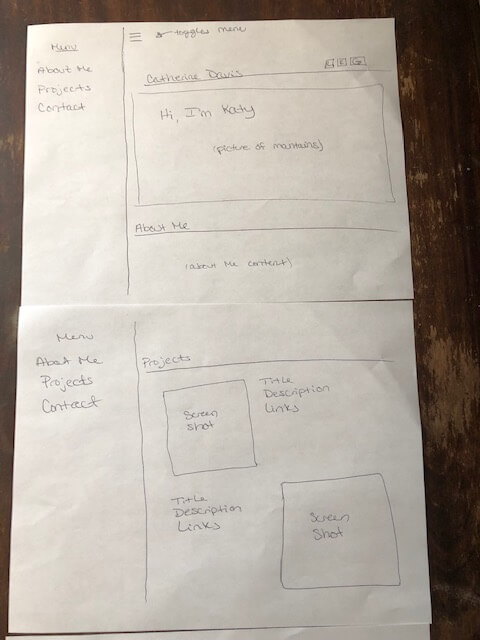 Menu
About Me
Projects
Contact
toggles menu
Catherine Davis
Hi, I'm Katy
(picture of mantains)
About Me
(about Me content)
Menu
About Me
Projects
Contact
Projects
Screen
shot
Title
Description
Links
Title
Description
Links
Screen
Shot